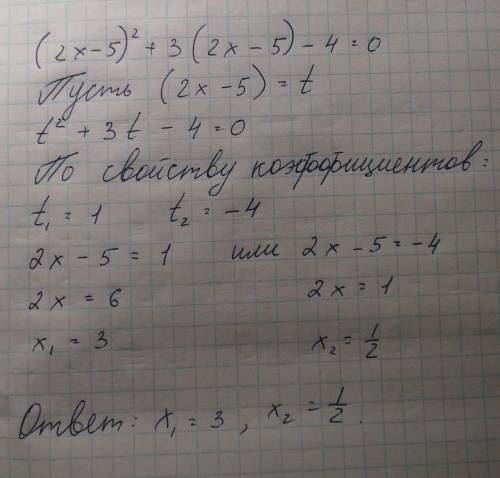 (2x-5)² + 3(2x-5)-4=0
Пусть (2x-5)=t
t² + 3t - 4=0
По свойству коэффициентов:
t₁ = 1 t₂ = -4
2x - 5 = 1 или 2x - 5 = -4
2x = 6 2x = 1
x₁ = 3 x₂ = 1/2
Ответ: x₁ = 3, x₂ = 1/2.